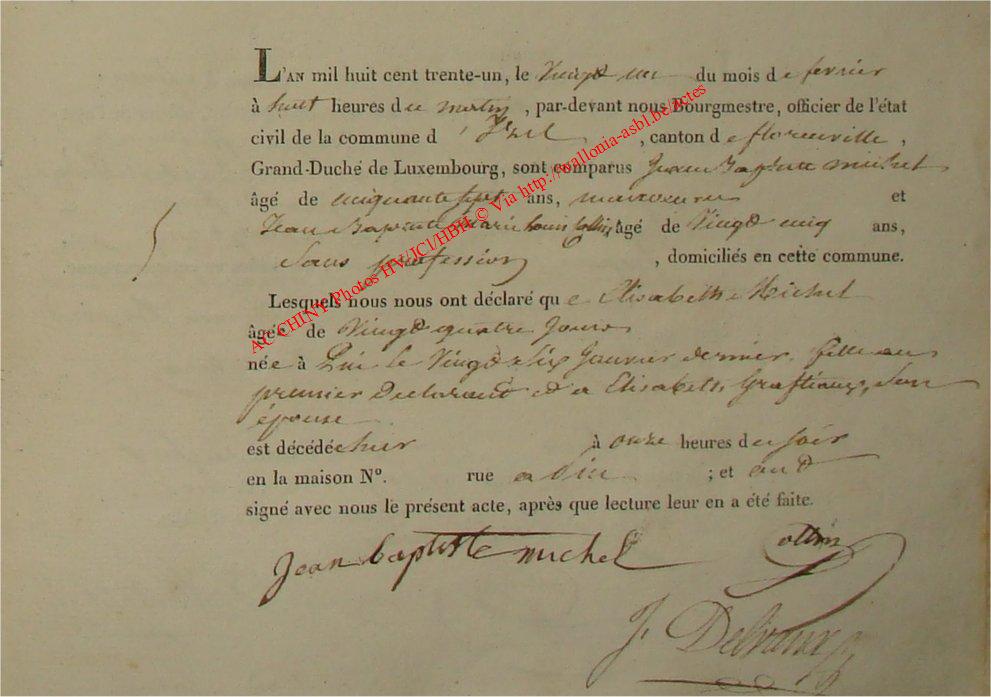 L'AN mil huit cent trente-un, le vingt un du mois de fevrier
à huit heures du matin, par-devant nous Bourgmestre, officier de l'état
civil de la commune d'Izel, canton de florenville,
Grand-Duché de Luxembourg, sont comparus Jean Baptiste michel
âgé de cinquante sept ans, et
Jean Baptiste Louis Collin, âgé de Vingt cinq ans,
Sans profession, domiciliés en cette commune.
Lesquels nous nous ont déclaré que Elisabethe Michel
âgée de Vingt quatre jours
née à Pin le Vingt six Janvier dernier, fille au
premier Declarant et a Elisabeth Son
épouse
est décédée hier à onze heures du soir
en la maison N°. rue a Pin ; et ont
signé avec nous le présent acte, après que lecture leur en a été faite.
Jean baptiste michel
Collin
J. Delvaux
AC CHINY Photos HV/JCl/HBH © Via http://wallonia-asbl.be/actes